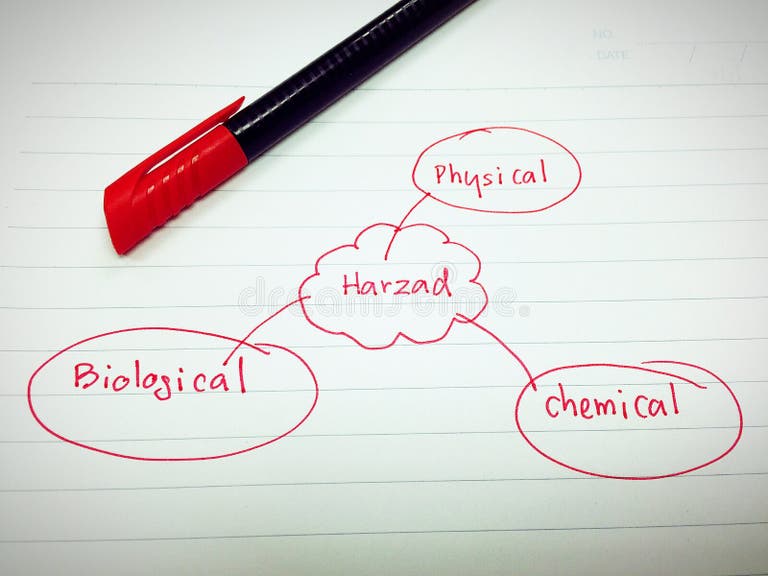 NO.
DATE
Physical
Harzad
dreamstime.com
Biological
chemical